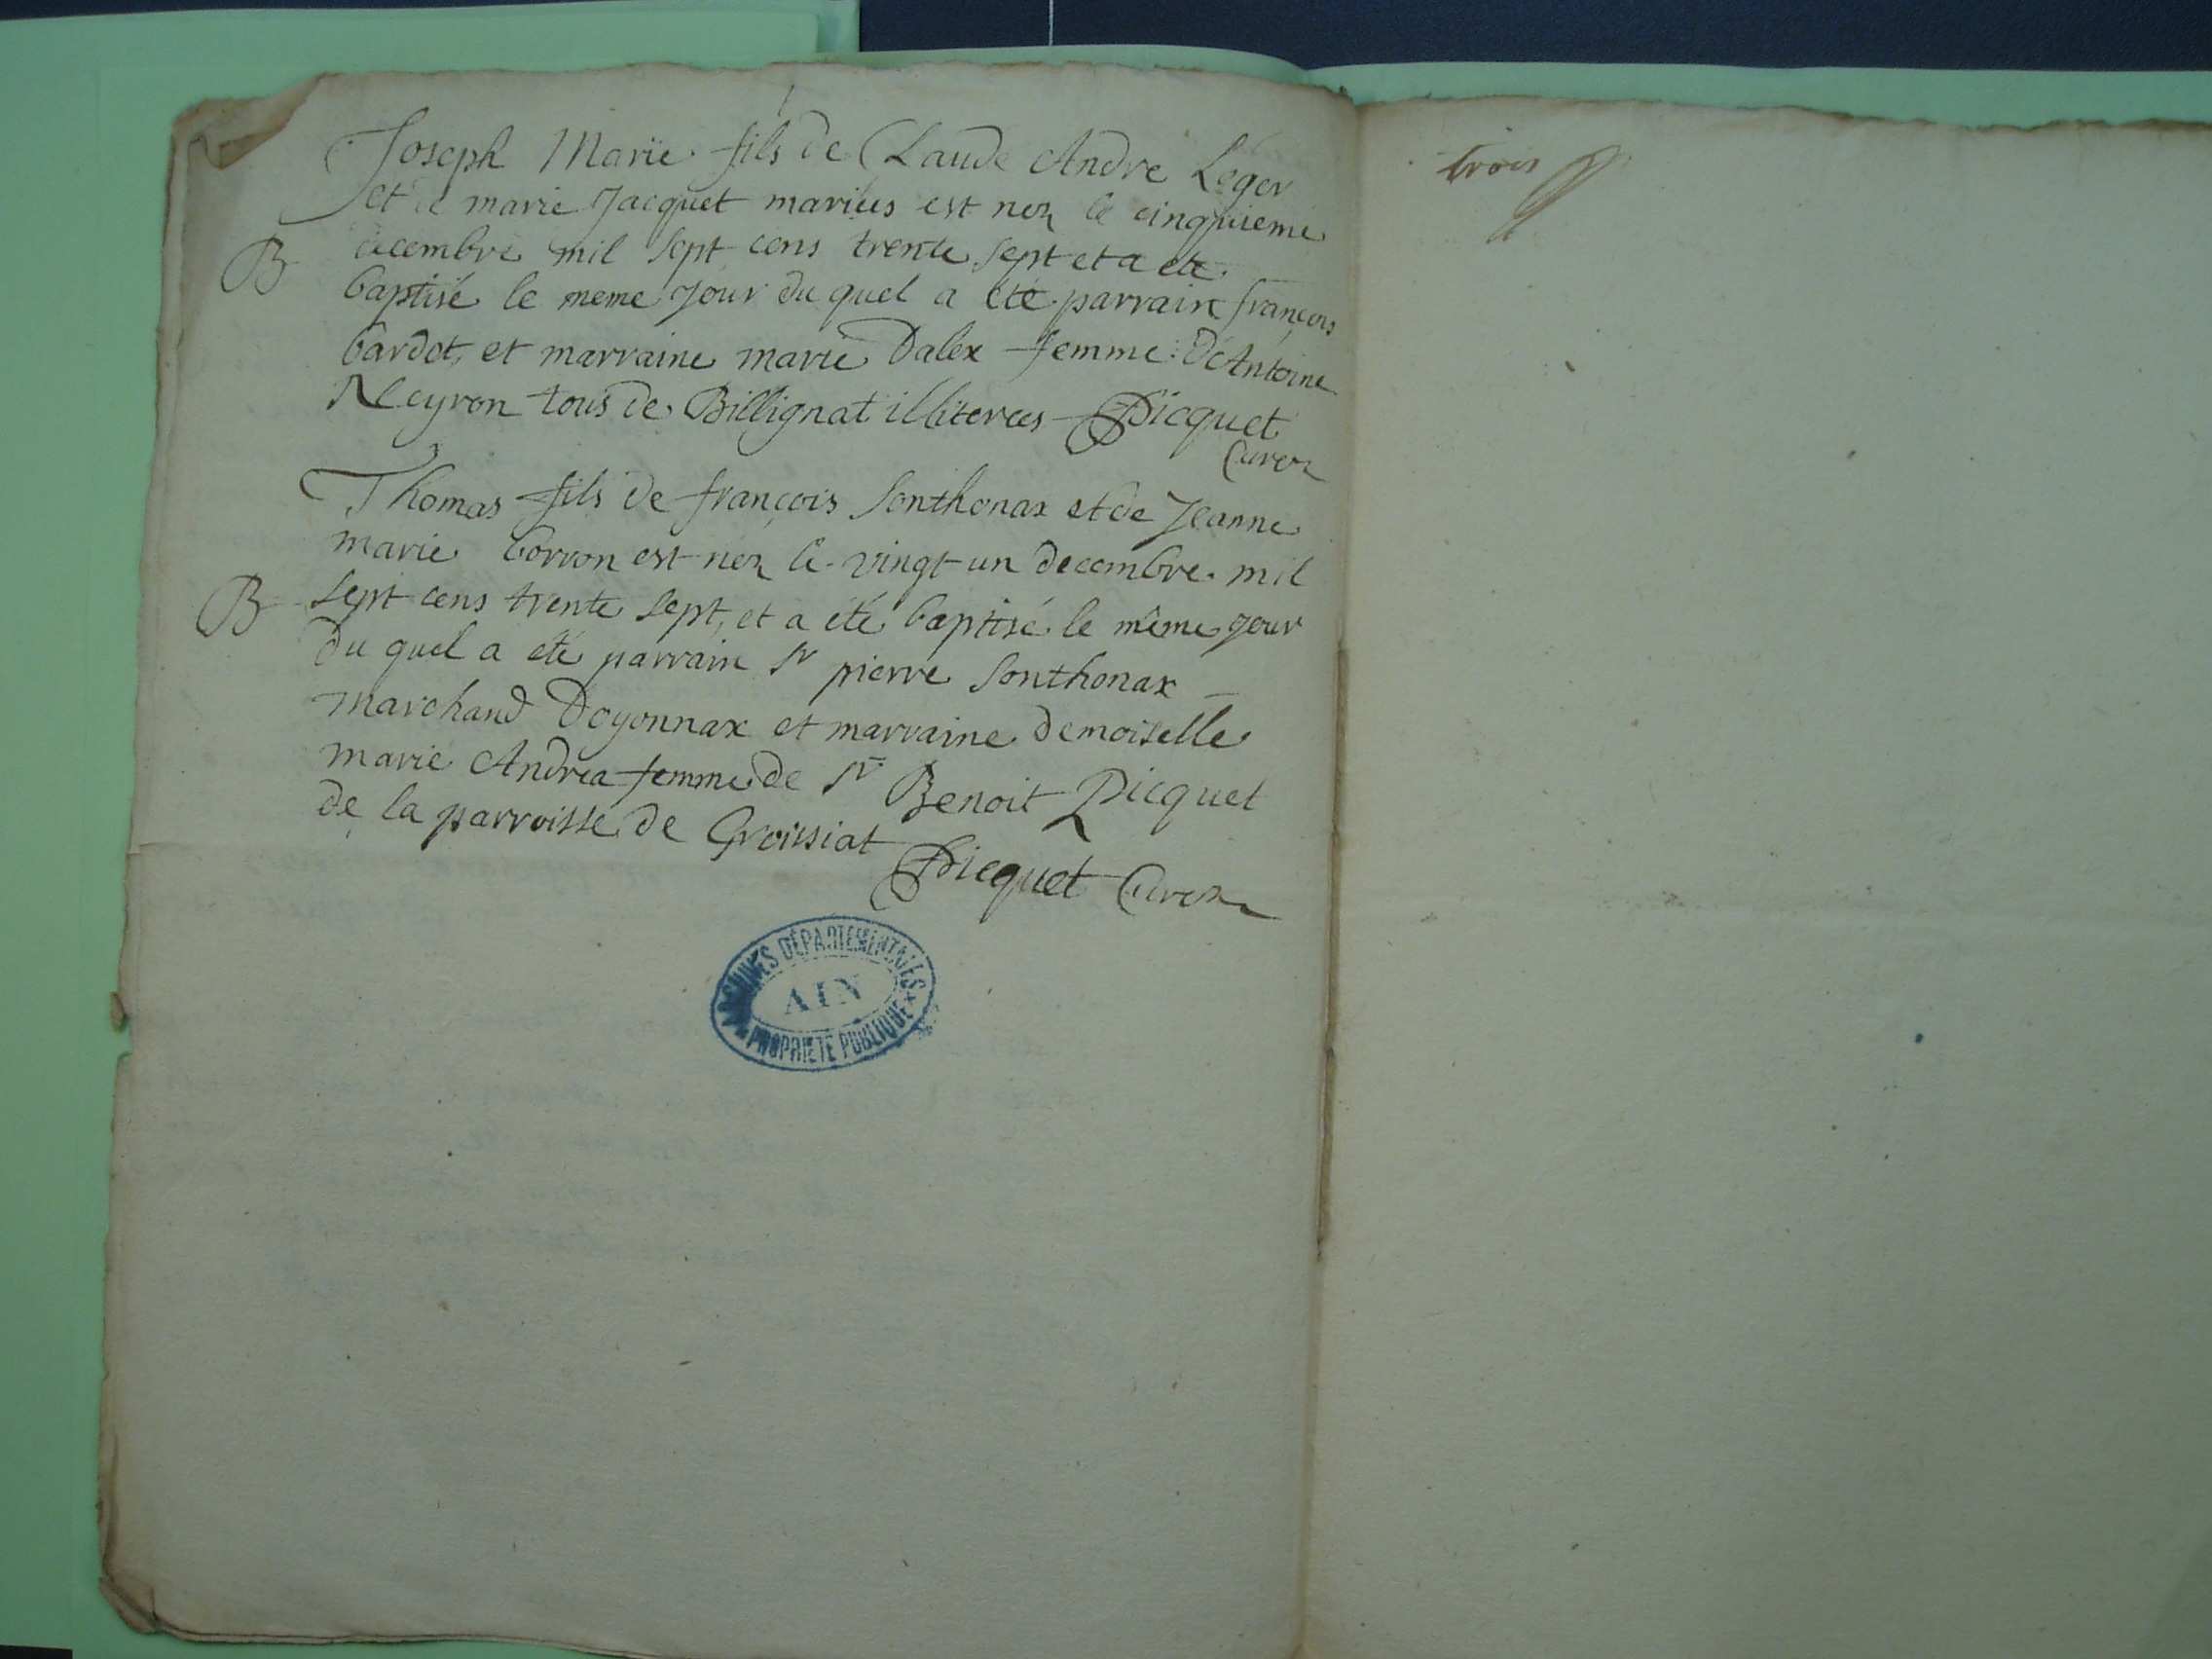 Joseph Marie fils de Claude Andre Leger
et de marie Jacquet mariées est nez le cinquieme
B decembre mil sept cens trente sept et a ete
baptisé le meme jour du quel a été parrain françois
bardet, et marraine marie Dalex femme d'Antoine
Neyron tous de Billignat illiterées Picquet
Curez
Thomas fils de françois Sonthonax et de Jeanne
marie borron est nez le vingt un decembre mil
B sept cens trente sept, et a été baptisé le même jour
du quel a eté parrain Sr pierre Sonthonax
marchand Doyonnax et marraine demoiselle
marie Andrea femme de Sr Benoit Picquet
de la parroisse de Groissiat
Picquet Curez
ARCHIVES DÉPARTEMENTALES
AIN
PROPRIÉTÉ PUBLIQUE
trois